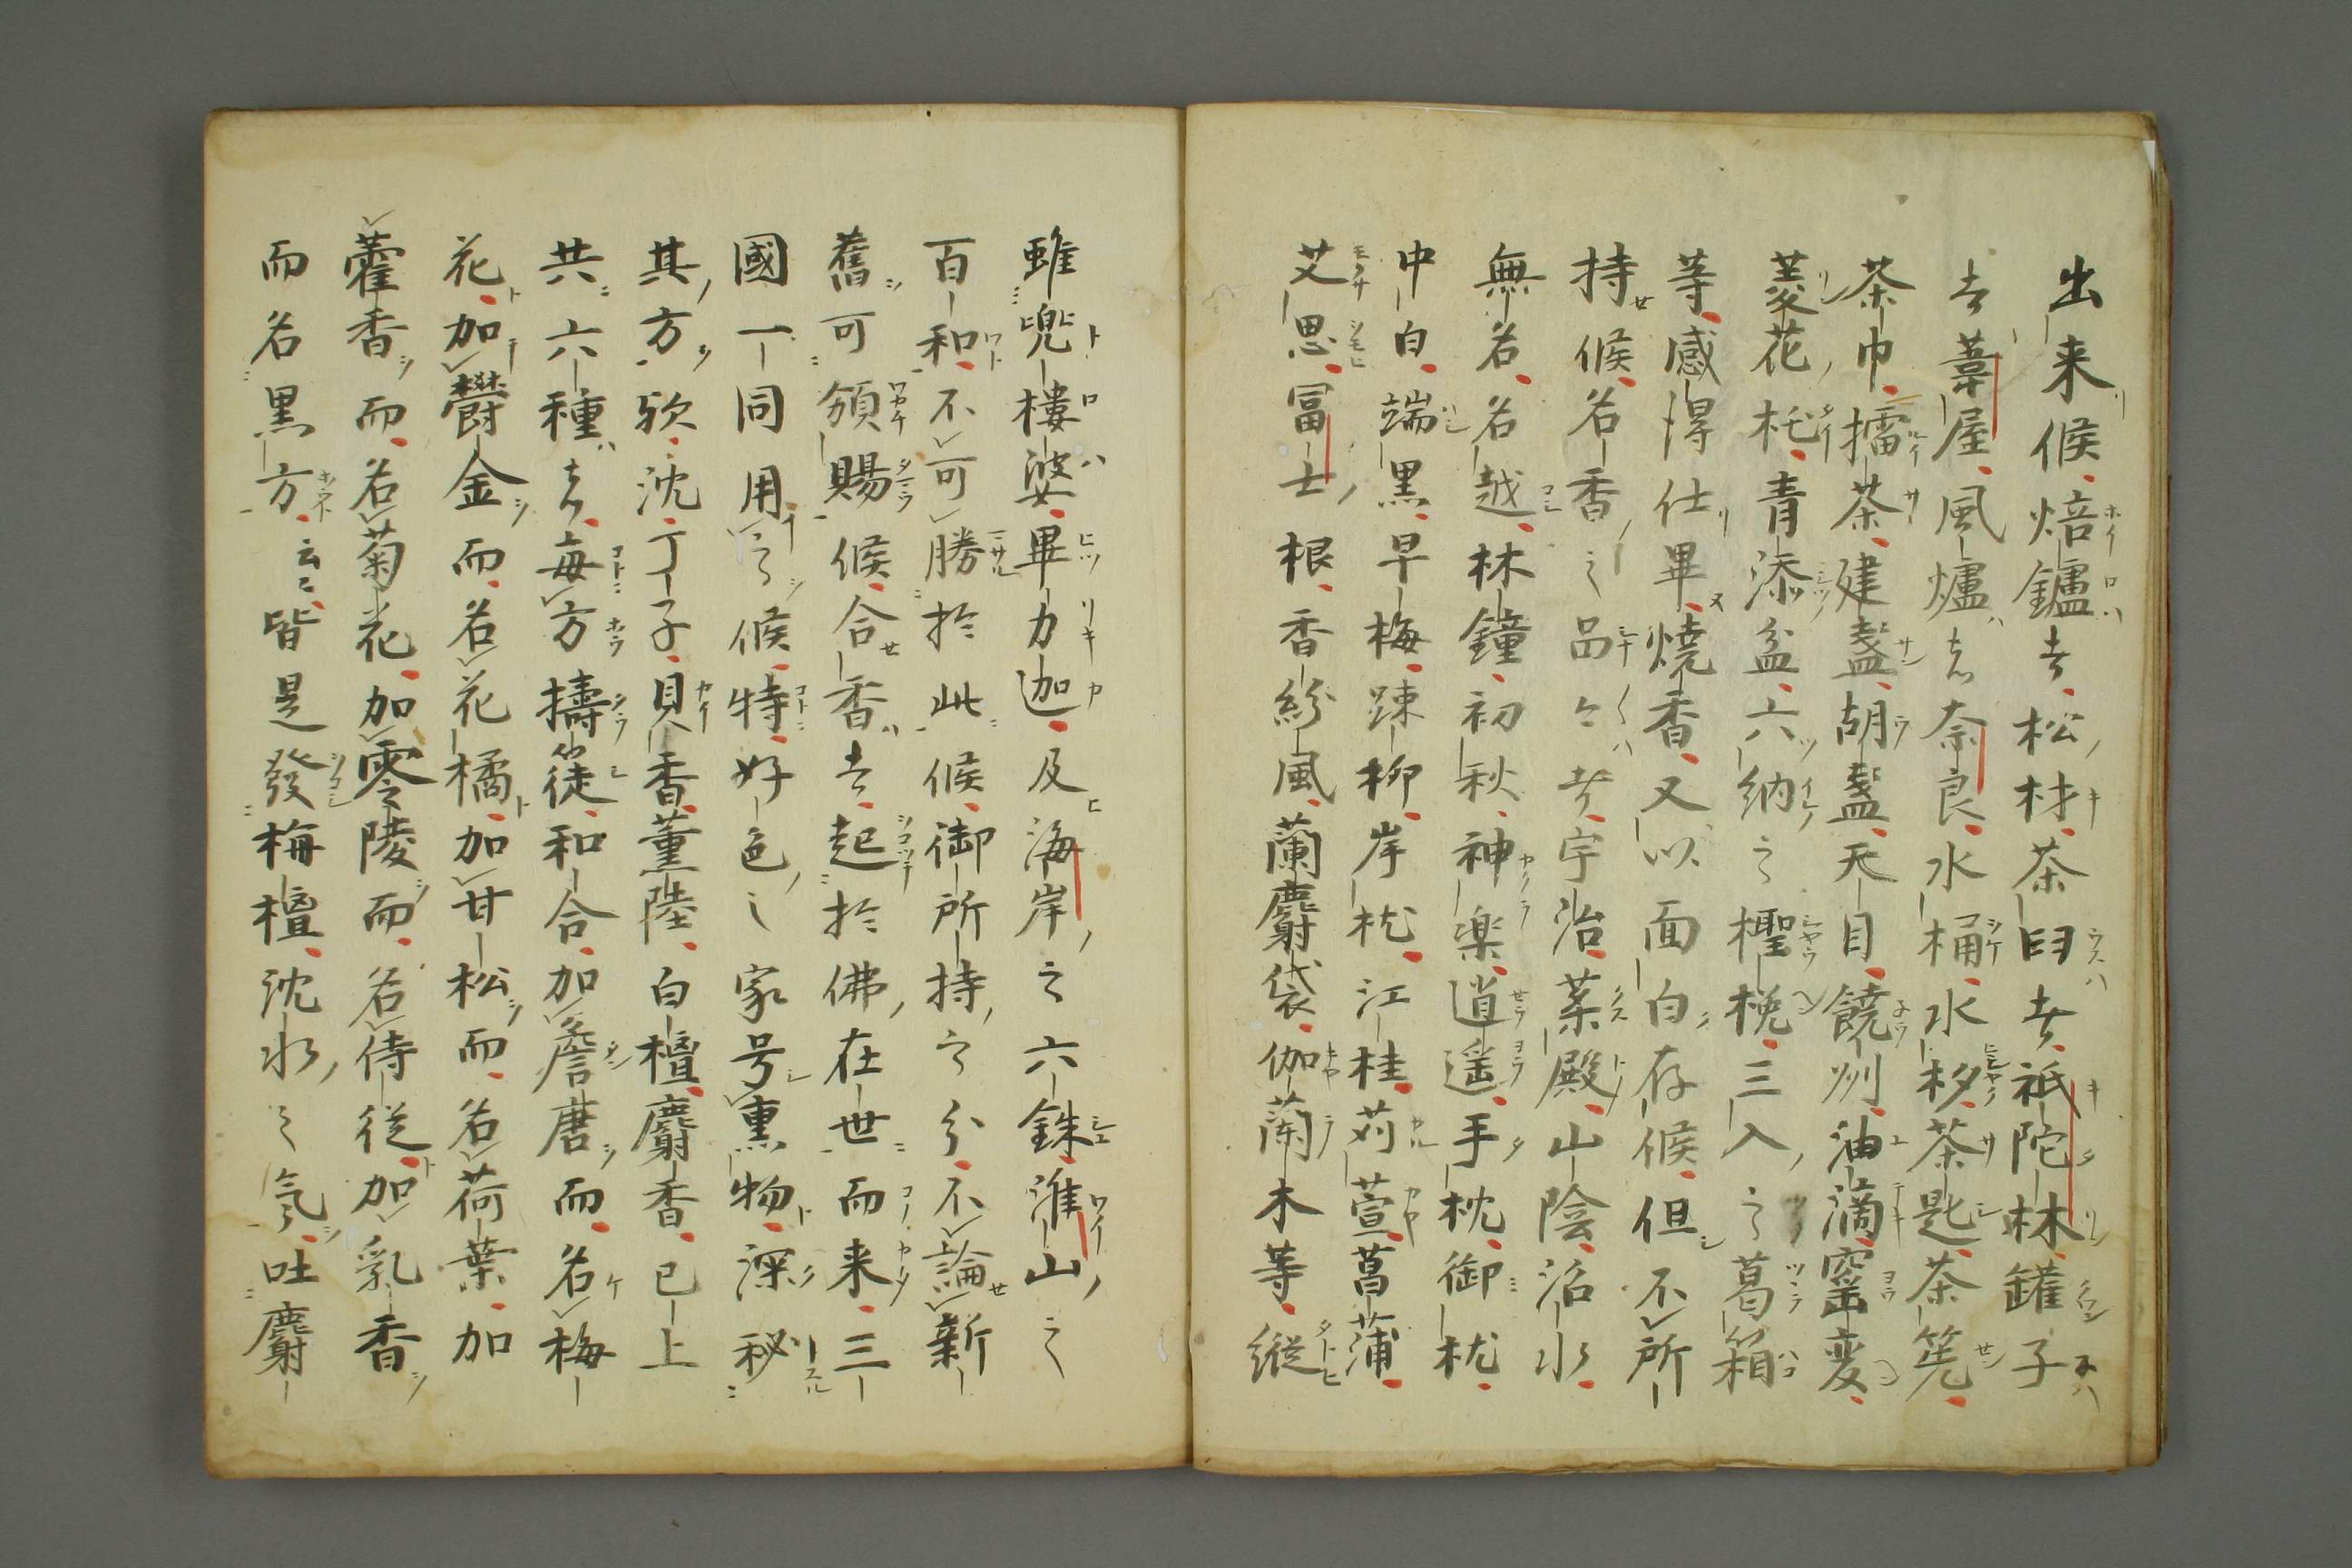 出来候焙鑪者松材茶臼者祇陀林鑵子
者葦屋風爐者奈良水桶水杓茶匙茶筅
茶巾擂茶建盞胡盞天目饒州油滴窯変
菱花托青漆盆六納之檉椀三入之葛箱
等感得仕畢燒香又以面白存候但不所
持候名香之品々者宇治薬殿山陰沼水
無名名越林鐘初秋神樂逍遥手枕御枕
中白端黒早梅踈柳岸枕江桂苅萱菖蒲
艾思冨士根香紛風蘭麝袋伽蘭木等縦
雖兜樓婆畢力迦及海岸之六銖淮山之
百和不可勝於此候御所持之分不論新
舊可頒賜候合香者起於佛在世而来三
國一同用之候特好色之家号熏物深秘
其方欤沈丁子貝香薫陸白檀麝香已上
共六種者毎方擣篵和合加詹唐而名梅
花加欝金而名花橘加甘松而名荷葉加
藿香而名菊花加零陵而名侍従加乳香
而名黒方云云皆是發栴檀沈水之氣吐麝